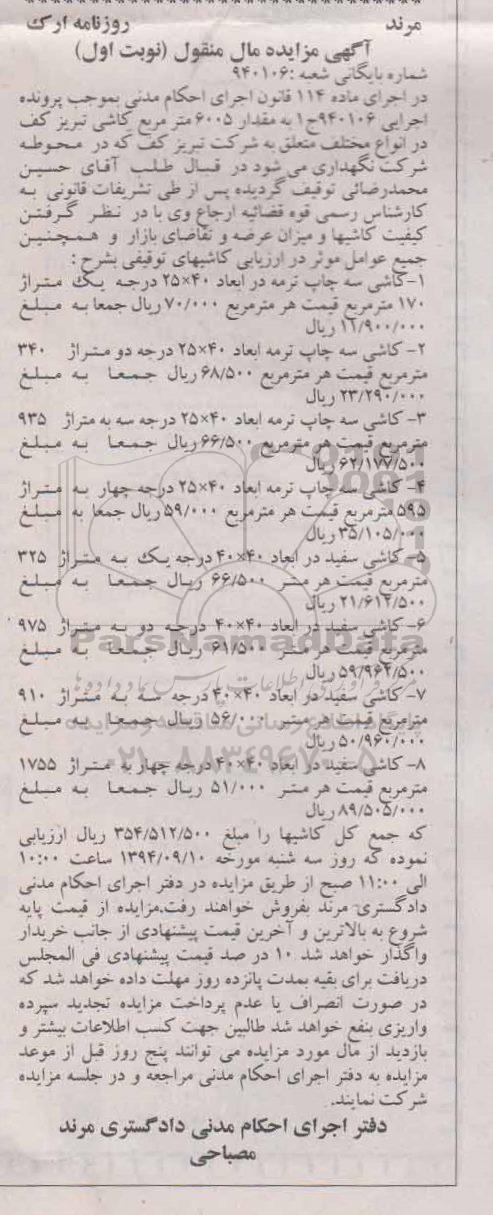 مرند
روزنامه ارک
آگهی مزایده مال منقول (نوبت اول)
شماره بایگانی شعبه :۹۴۰۱۰۶
در اجرای ماده ۱۱۴ قانون اجرای احکام مدنی بموجب پرونده
اجرایی ۹۴۰۱۰۶ج۱ به مقدار ۶۰۰۵ متر مربع کاشی تبریز کف
در انواع مختلف متعلق به شرکت تبریز کف که در محوطه
شرکت نگهداری می شود در قبال طلب آقای حسین
محمدرضائی توقیف گردیده پس از طی تشریفات قانونی به
کارشناس رسمی قوه قضائیه ارجاع وی با در نظر گرفتن
کیفیت کاشیها و میزان عرضه و تقاضای بازار و همچنین
جمیع عوامل موثر در ارزیابی کاشیهای توقیفی بشرح :
۱-کاشی سه چاپ ترمه در ابعاد ۴۰×۲۵ درجه یک متراژ
۱۷۰ مترمربع قیمت هر مترمربع ۷۰/۰۰۰ ریال جمعا به مبلغ
۱۱/۹۰۰/۰۰۰ ریال
۲- کاشی سه چاپ ترمه ابعاد ۴۰×۲۵ درجه دو متراژ ۳۴۰
مترمربع قیمت هر مترمربع ۶۸/۵۰۰ ریال جمعا به مبلغ
۲۳/۲۹۰/۰۰۰ ریال
۳- کاشی سه چاپ ترمه ابعاد ۴۰×۲۵ درجه سه به متراژ ۹۳۵
مترمربع قیمت هر مترمربع ۶۶/۵۰۰ ریال جمعا به مبلغ
۶۲/۱۷۷/۵۰۰ ریال
۴- کاشی سه چاپ ترمه ابعاد ۴۰×۲۵ درجه چهار به متراژ
۵۹۵ مترمربع قیمت هر مترمربع ۵۹/۰۰۰ ریال جمعا به مبلغ
۳۵/۱۰۵/۰۰۰ ریال
۵- کاشی سفید در ابعاد ۴۰×۴۰ درجه یک به متراژ ۳۲۵
مترمربع قیمت هر متر ۶۶/۵۰۰ ریال جمعا به مبلغ
۲۱/۶۱۲/۵۰۰ ریال
۶- کاشی سفید در ابعاد ۴۰×۴۰ درجه دو به متراژ ۹۷۵
مترمربع قیمت هر متر ۶۱/۵۰۰ ریال جمعا به مبلغ
۵۹/۹۶۲/۵۰۰ ریال
۷- کاشی سفید در ابعاد ۴۰×۴۰ درجه سه به متراژ ۹۱۰
مترمربع قیمت هر متر ۵۶/۰۰۰ ریال جمعا به مبلغ
۵۰/۹۶۰/۰۰۰ ریال
۸- کاشی سفید در ابعاد ۴۰×۴۰ درجه چهار به متراژ ۱۷۵۵
مترمربع قیمت هر متر ۵۱/۰۰۰ ریال جمعا به مبلغ
۸۹/۵۰۵/۰۰۰ ریال
که جمع کل کاشیها را مبلغ ۳۵۴/۵۱۲/۵۰۰ ریال ارزیابی
نموده که روز سه شنبه مورخه ۱۳۹۴/۰۹/۱۰ ساعت ۱۰:۰۰
الی ۱۱:۰۰ صبح از طریق مزایده در دفتر اجرای احکام مدنی
دادگستری مرند بفروش خواهند رفت.مزایده از قیمت پایه
شروع به بالاترین و آخرین قیمت پیشنهادی از جانب خریدار
واگذار خواهد شد ۱۰ در صد قیمت پیشنهادی فی المجلس
دریافت برای بقیه بمدت پانزده روز مهلت داده خواهد شد که
در صورت انصراف یا عدم پرداخت مزایده تجدید سپرده
واریزی بنفع خواهد شد طالبین جهت کسب اطلاعات بیشتر و
بازدید از مال مورد مزایده می توانند پنج روز قبل از موعد
مزایده به دفتر اجرای احکام مدنی مراجعه و در جلسه مزایده
شرکت نمایند.
دفتر اجرای احکام مدنی دادگستری مرند
مصباحی
ParsNamadData
۰۲۱-۸۸۳۴۹۶۷۰-۵